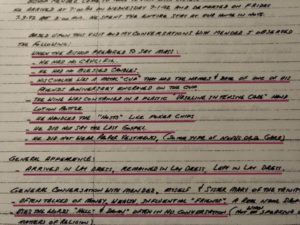 HE ARRIVED AT 7:00 AM ON WEDNESDAY AND DEPARTED ON FRIDAY
AT 8:00 AM. HE SPENT THE ENTIRE STAY AT OUR HOUSE
BASED UPON THIS VISIT AND MY CONVERSATIONS W/H. MENDEZ I OBSERVED
THE FOLLOWING:
WHEN THE BISHOP PREPARED TO SAY MASS:
- HE HAD NO CRUCIFIX.
- HE HAD NO BLESSED CANDLES.
- HIS CHALICE WAS A METAL "CUP" THAT HAD THE NAMES & DATE OF ONE OF HIS
FRIENDS ANNIVERSARY ENGRAVED ON THE CUP.
- THE WINE WAS CONTAINED IN A PLASTIC "VASELINE INTENSIVE CARE" HAND
LOTION BOTTLE
- HE HANDLED THE "HOSTS" LIKE POKER CHIPS
- HE DID NOT SAY THE LAST GOSPEL
- HE DID NOT WEAR PROPER VESTMENTS, (SOME TYPE OF NOVUS ORDO GARB)
GENERAL APPEARANCE:
- ARRIVED IN LAY DRESS, REMAINED IN LAY DRESS, LEFT IN LAY DRESS
GENERAL CONVERSATION WITH MENDEZ, MYSELF & SISTER MARY OF THE TRINITY
- OFTEN TALKED OF MONEY, WEALTH, INFLUENTIAL "FRIENDS". A REAL NAME DROP
- USED THE WORDS "HELL" & DAMN" OFTEN IN HIS CONVERSATION (WHEN NOT OF SPEAKING
MATTERS OF RELIGION).